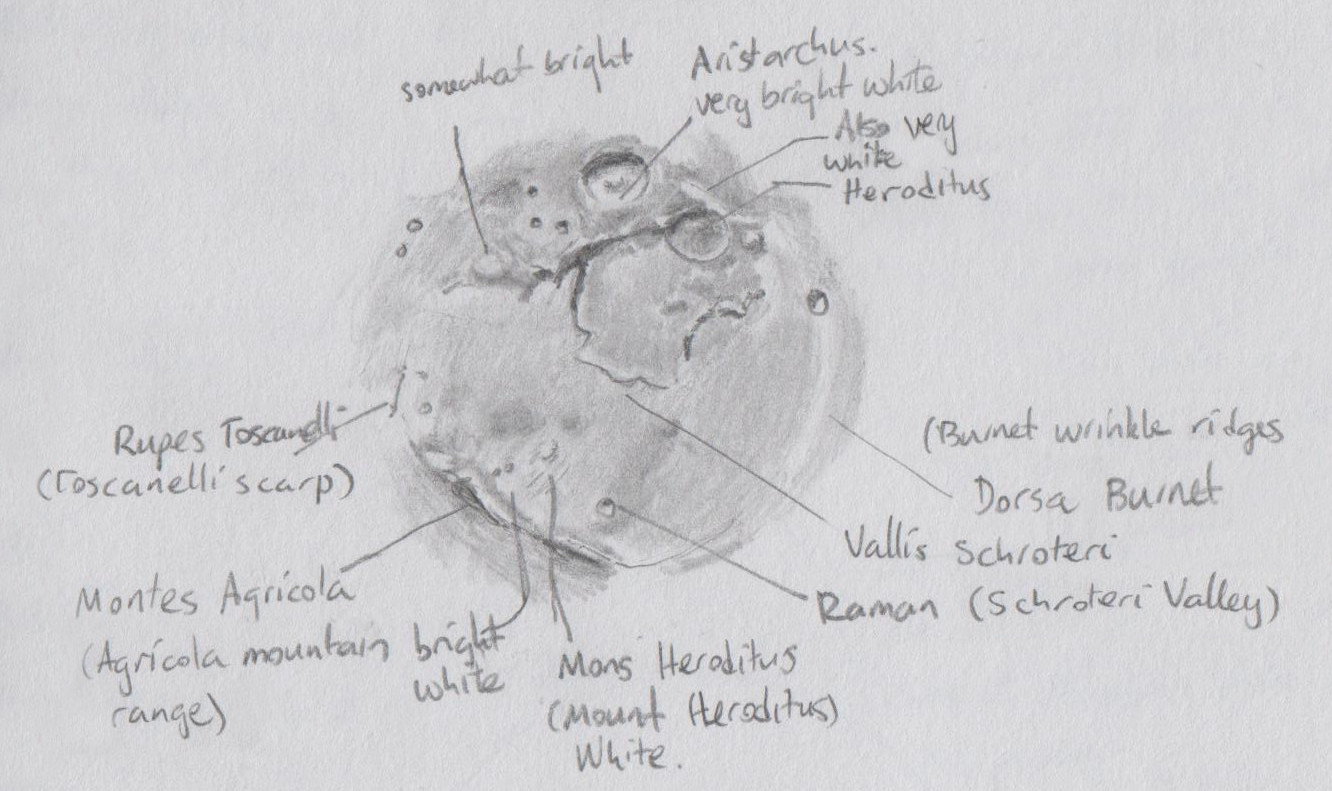 somewhat bright
Aristarchus.
very bright white
Also very
white
Heroditus
Rupes Toscanelli
(Toscanelli scarp)
(Burnet wrinkle ridges
Dorsa Burnet
Vallis Schroteri
Raman (Schroteri Valley)
Montes Agricola
(Agricola mountain
range)
bright
white
Mons Heroditus
(Mount Heroditus)
White.